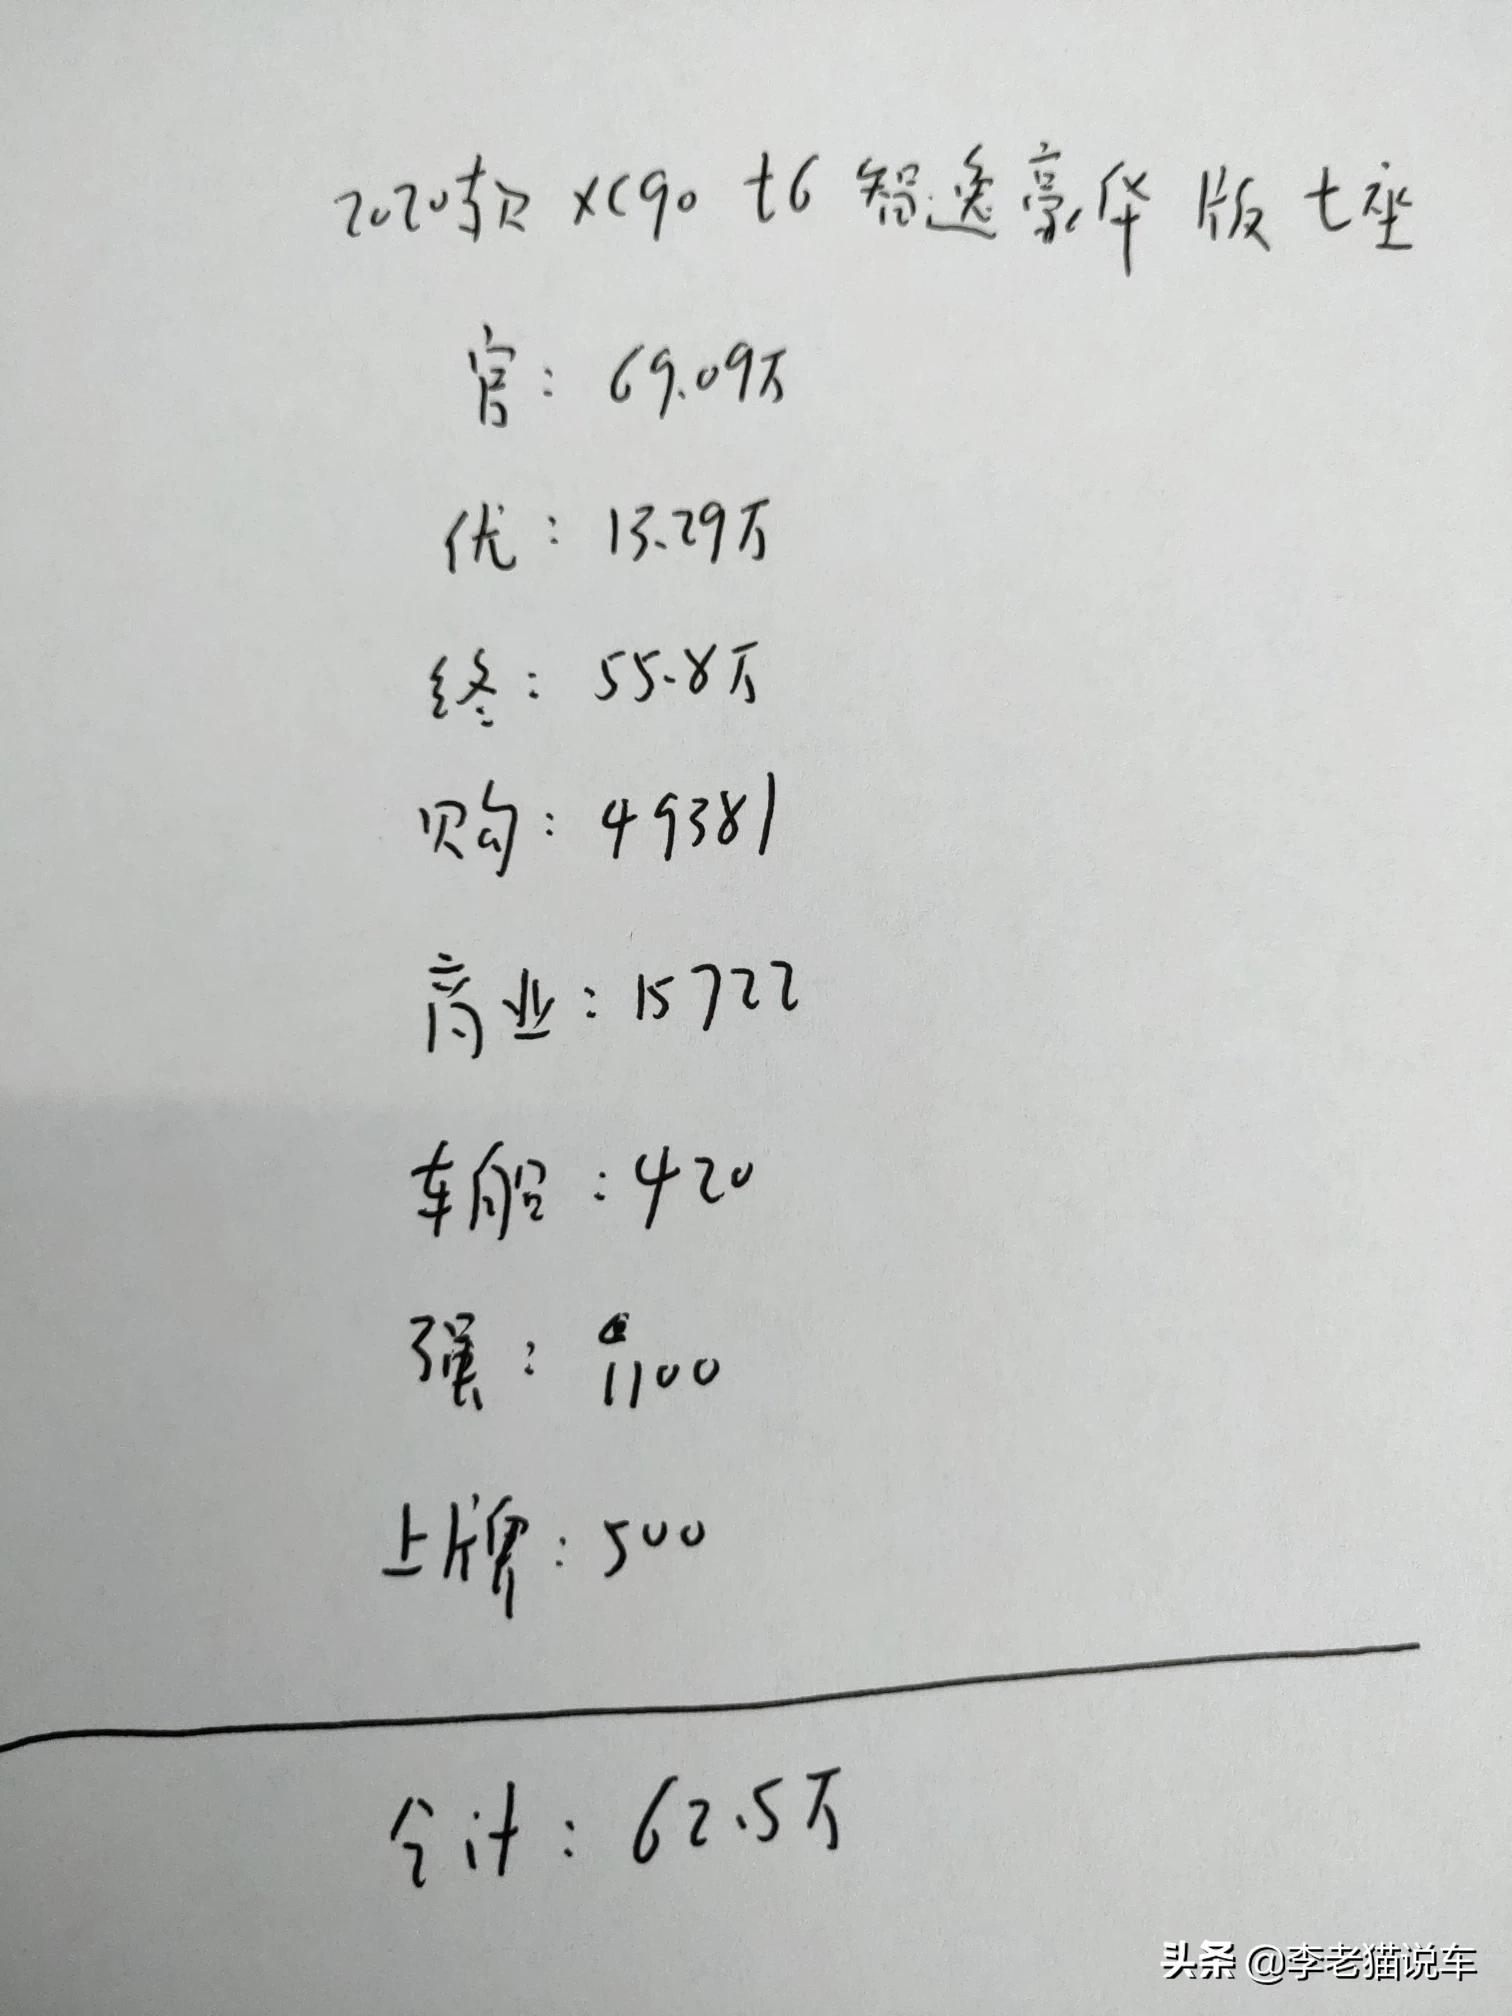 2020款 xc90 t6 智逸豪华版 七座
官：69.09万
优：13.29万
终：55.8万
购：49381
商业：15722
车船：420
强：1100
上牌：500
合计：62.5万
头条 @李老猫说车